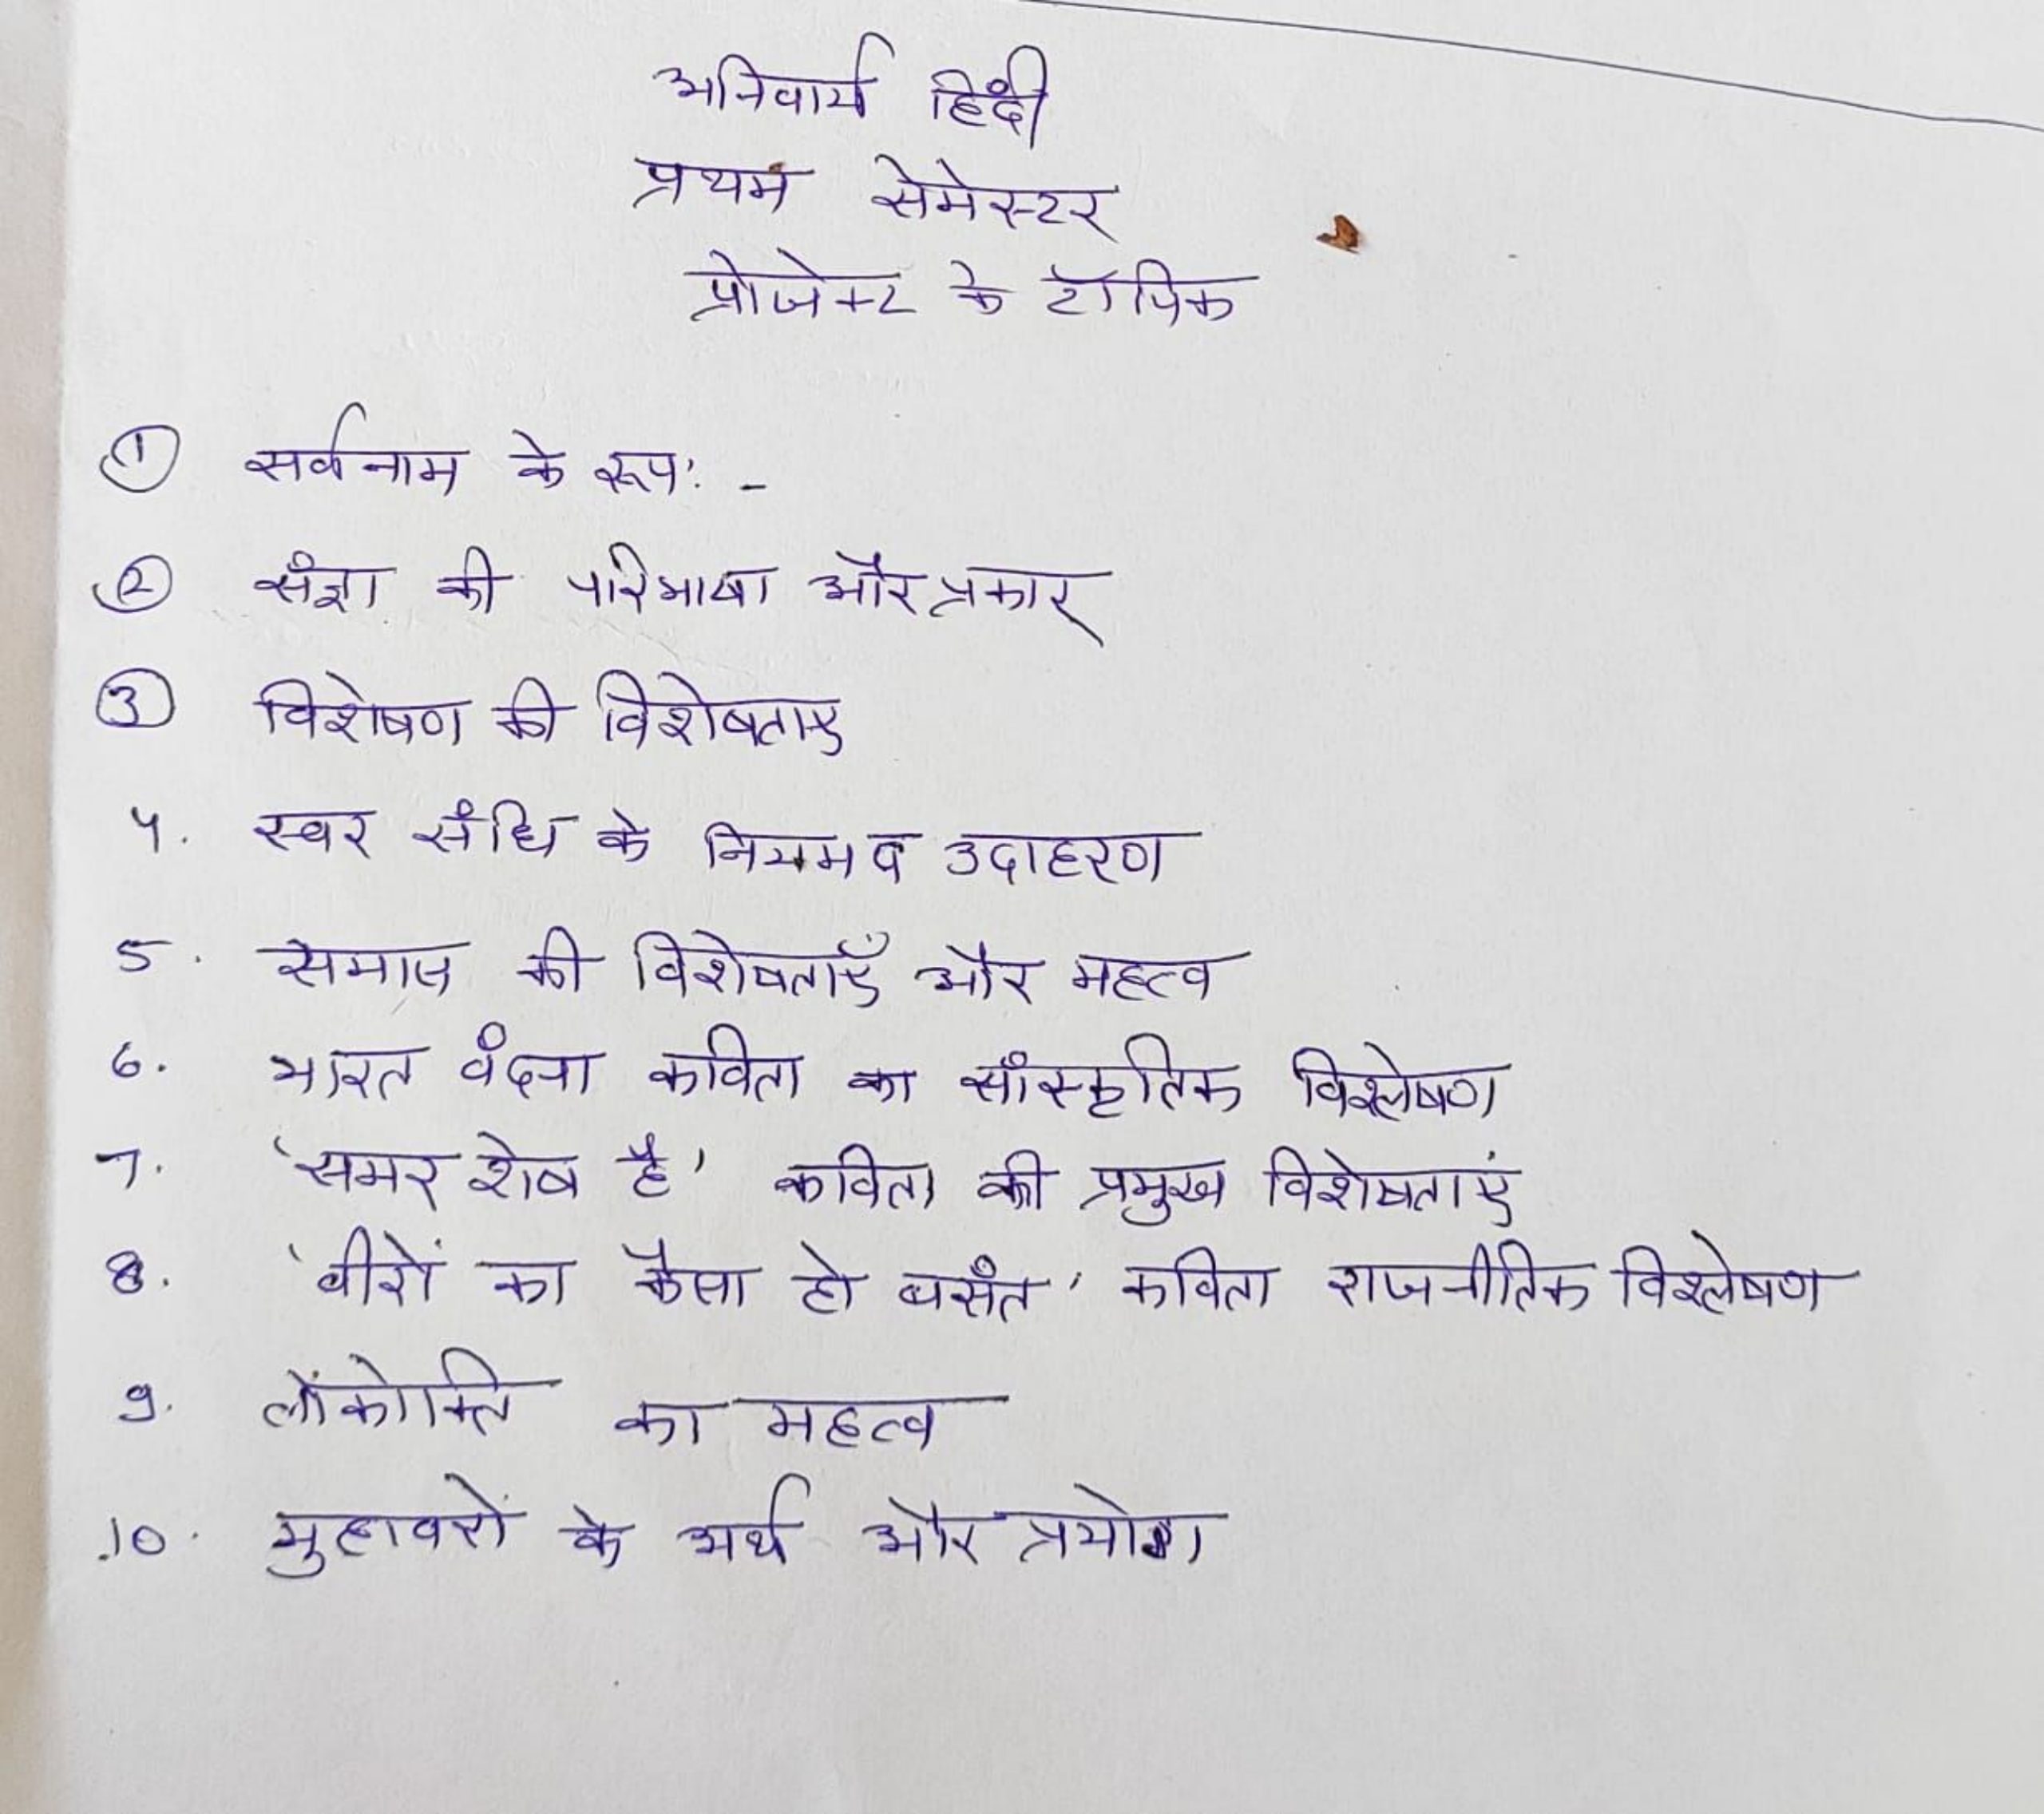 अनिवार्य हिंदी
प्रथम सेमेस्टर
प्रोजेक्ट के टॉपिक
① सर्वनाम के रूप: -
② संज्ञा की परिभाषा और प्रकार
③ विशेषण की विशेषताए
4. स्वर संधि के नियम व उदाहरण
5. समास की विशेषताएँ और महत्व
6. भारत वंदना कविता का सांस्कृतिक विश्लेषण
7. 'समर शेष है' कविता की प्रमुख विशेषताएं
8. 'वीरों का कैसा हो बसंत' कविता राजनीतिक विश्लेषण
9. लोंकोक्ति का महत्व
10. मुहावरों के अर्थ और प्रयोग